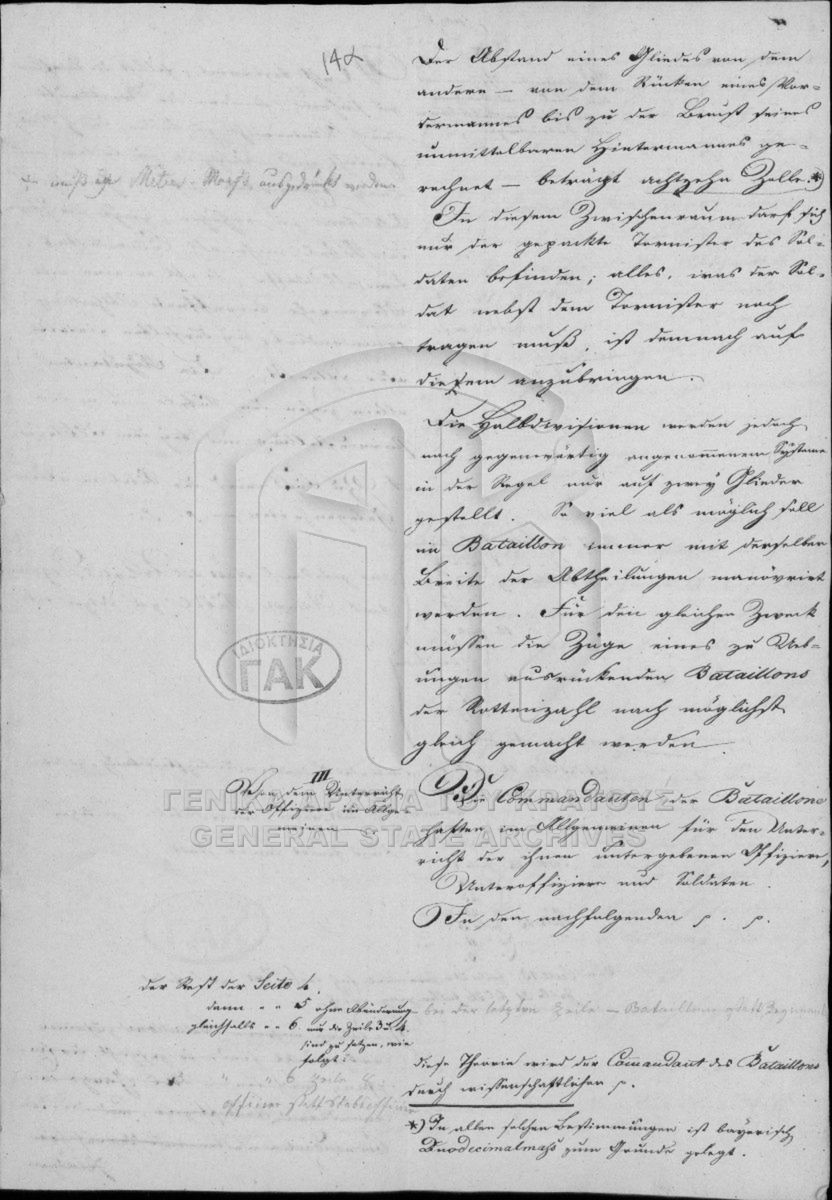 14α
Der Abstand eines Gliedes von dem
andern — von dem Rücken eines Vor-
dermannes bis zu der Brust seines
unmittelbaren Hintermannes ge-
rechnet — beträgt achtzehn Zolle.*)
In diesem Zwischenraum darf sich
nur der gepackte Tornister des Sol-
daten befinden; alles, was der Sol-
dat nebst dem Tornister noch
tragen muß, ist demnach auf
diesem anzubringen.
Die Halbdivisionen werden jedoch
nach gegenwärtig angenommenem Systeme
in der Regel nur auf zwey Glieder
gestellt. So viel als möglich soll
im Bataillon immer mit derselben
Breite der Abtheilungen manövrirt
werden. Für den gleichen Zweck
müssen die Züge eines zu Ueb-
ungen ausrückenden Bataillons
der Rottenzahl nach möglichst
gleich gemacht werden.
muß in Meter-Maaß ausgedrückt werden
III
Von dem Unterricht
der Offiziere im Allge-
meinen
Die Commandanten der Bataillone
haften im Allgemeinen für den Unter-
richt der ihnen untergebenen Offiziere,
Unteroffiziere und Soldaten.
In den nachfolgenden p. p.
der Rest der Seite 4.
dann " " 5 ohne Abänderung
bei der letzten Zeile — Bataillon statt Regiment
gleichfalls " " 6 nur die Zeile 3 u. 4.
sind zu setzen, wie
folgt:
diese Theorie wird der Comandant des Bataillons
durch wissenschaftlichen p.
6 Zeile 8
offizier statt Stabsoffizier
*) In allen solchen Bestimmungen ist bayerisch
Duodecimalmaß zum Grunde gelegt.
ΙΔΙΟΚΤΗΣΙΑ
ΓΑΚ
ΓΕΝΙΚΑ ΑΡΧΕΙΑ ΤΟΥ ΚΡΑΤΟΥΣ
GENERAL STATE ARCHIVES